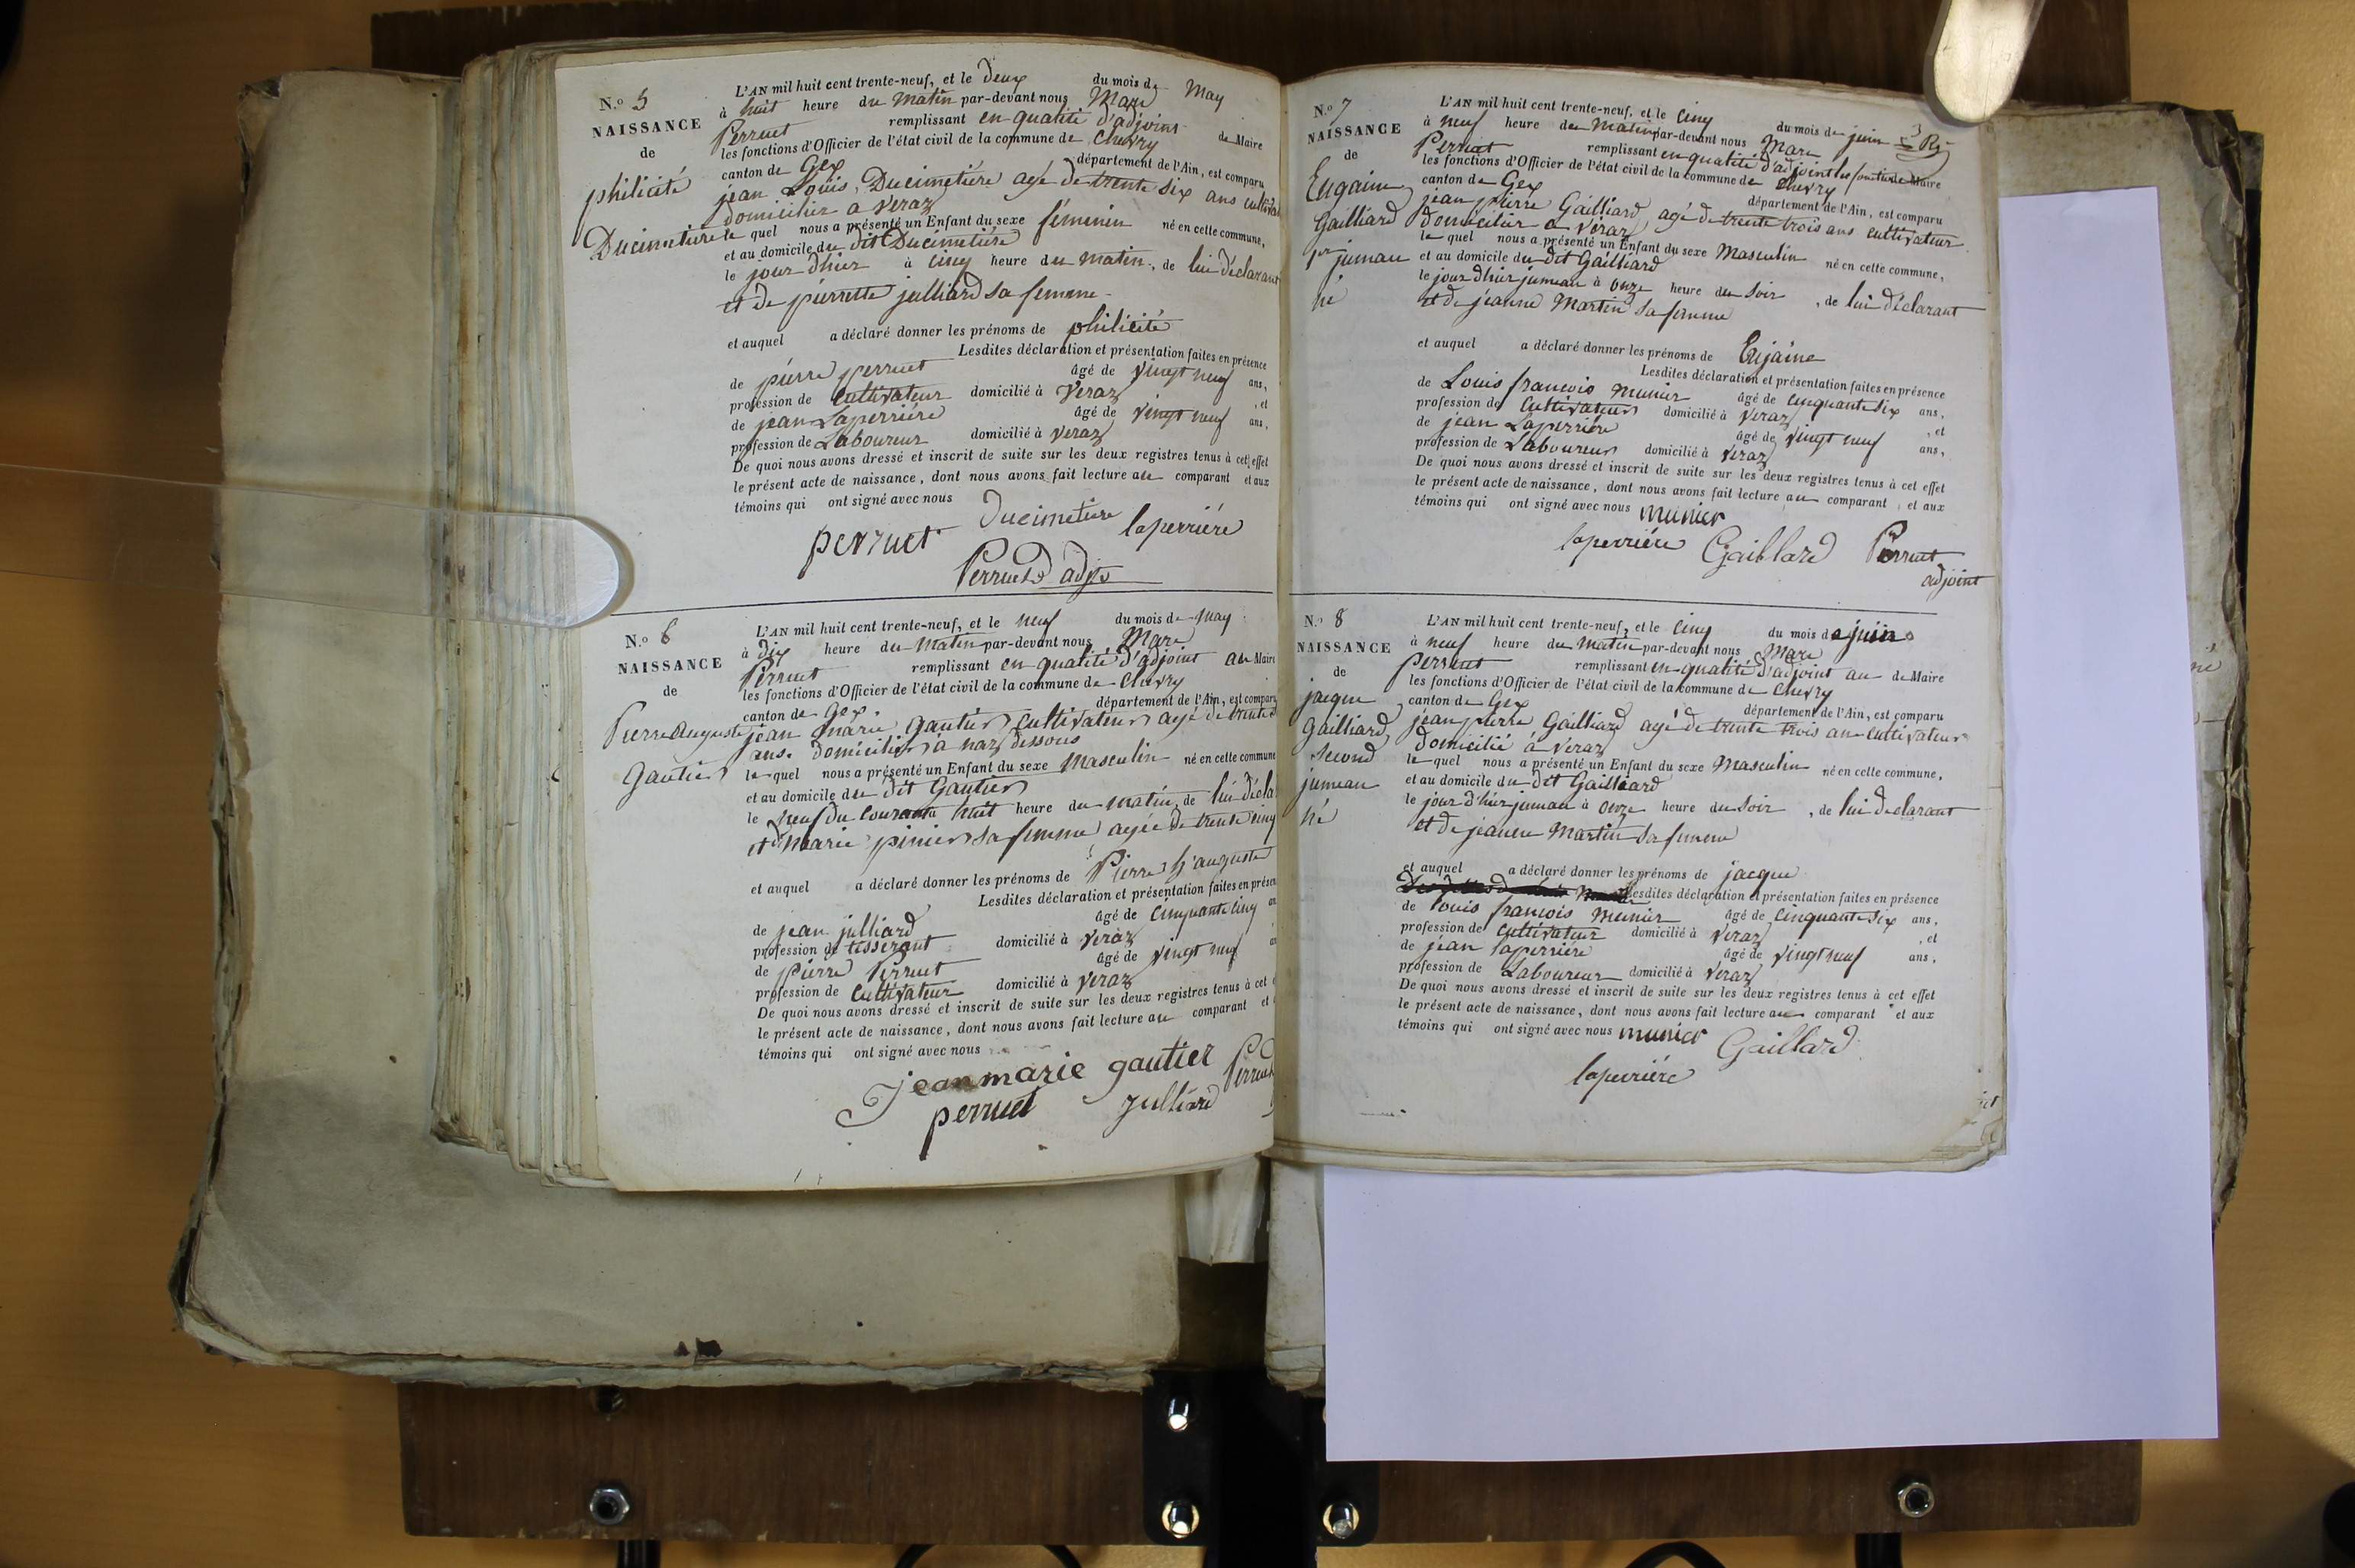 N.º 5
NAISSANCE
de
philicité
Ducimetière
L'AN mil huit cent trente-neuf, et le deux du mois de May
à huit heure du matin par-devant nous Marc
Perruet remplissant en qualité d'adjoins de Maire
les fonctions d'Officier de l'état civil de la commune de Chevry
canton de Gex département de l'Ain, est comparu
jean Louis Ducimetière agé de trente six ans
domicilier a Veraz
le quel nous a présenté un Enfant du sexe féminin né en cette commune,
et au domicile du dit Ducimetière
le jour dhier à cinq heure du matin, de lui déclarant
et de pierrette julliard sa femme
et auquel a déclaré donner les prénoms de philicité
Lesdites déclaration et présentation faites en présence
de pierre perruet âgé de vingt neuf ans,
profession de cultivateur domicilié à Veraz, et
de jean Laperriére âgé de vingt neuf ans,
profession de Laboureur domicilié à Veraz
De quoi nous avons dressé et inscrit de suite sur les deux registres tenus à cet effet
le présent acte de naissance, dont nous avons fait lecture au comparant et aux
témoins qui ont signé avec nous
Ducimetière laperriére
perruet
Perruet adjt
N.º 6
NAISSANCE
de
Pierre Auguste
Gautier
L'AN mil huit cent trente-neuf, et le neuf du mois de May
à dix heure du matin par-devant nous Marc
Perruet remplissant en qualité d'adjoint au Maire
les fonctions d'Officier de l'état civil de la commune de Chevry
canton de Gex. département de l'Ain, est comparu
jean marie Gautier Cultivateur agé de trente
ans. domicilier à naz dessous
le quel nous a présenté un Enfant du sexe Masculin né en cette commune
et au domicile du dit Gautier
le neuf du courant a huit heure du matin, de lui décla
et marie pinier sa femme agée de trente cinq
et auquel a déclaré donner les prénoms de Pierre auguste
Lesdites déclaration et présentation faites en présen
de jean julliard âgé de cinquante cinq
profession de tisserant domicilié à Veraz
de pierre Perruet âgé de vingt neuf
profession de cultivateur domicilié à Veraz
De quoi nous avons dressé et inscrit de suite sur les deux registres tenus à cet
le présent acte de naissance, dont nous avons fait lecture au comparant et
témoins qui ont signé avec nous
jean marie gautier Perruet
perruet julliard
N.º 7
NAISSANCE
de
Eugaine
Gailliard
1er jumau
né
L'AN mil huit cent trente-neuf, et le cinq du mois de juin
à neuf heure du Matin par-devant nous Marc
Perruet remplissant en qualité d'adjoint les fonction de Maire
les fonctions d'Officier de l'état civil de la commune de Chevry
canton de Gex département de l'Ain, est comparu
jean pierre Gailliard, agé de trente trois ans cultivateur
domicilier a Veraz
le quel nous a présenté un Enfant du sexe Masculin né en cette commune,
et au domicile du dit Gailliard
le jour dhier jumeau à onze heure du soir, de lui déclarant
et de jeanne Martin sa femme
et auquel a déclaré donner les prénoms de Eujaine
Lesdites déclaration et présentation faites en présence
de Louis francois munier âgé de cinquante six ans,
profession de Cultivateur domicilié à Veraz, et
de jean Laperriére âgé de vingt neuf ans,
profession de Laboureur domicilié à Veraz
De quoi nous avons dressé et inscrit de suite sur les deux registres tenus à cet effet
le présent acte de naissance, dont nous avons fait lecture au comparant, et aux
témoins qui ont signé avec nous munier
laperriére Gaillard Perruet
adjoint
N.º 8
NAISSANCE
de
jacque
Gailliard
Second
jumeau
né
L'AN mil huit cent trente-neuf, et le cinq du mois de juin
à neuf heure du matin par-devant nous Marc
Perruet remplissant en qualité d'adjoint au de Maire
les fonctions d'Officier de l'état civil de la commune de Chevry
canton de Gex département de l'Ain, est comparu
jean pierre Gailliard agé de trente trois an cultivateur
domicilié à Veraz
le quel nous a présenté un Enfant du sexe Masculin né en cette commune,
et au domicile du dit Gailliard
le jour d'hier jumau à onze heure du soir, de lui declarant
et de jeanne Martin sa femme
et auquel a déclaré donner les prénoms de jacque
Lesdites déclaration et présentation faites en présence
de louis francois munier âgé de cinquante six ans,
profession de cultivateur domicilié à Veraz, et
de jean laperriére âgé de vingt neuf ans,
profession de Laboureur domicilié à Veraz
De quoi nous avons dressé et inscrit de suite sur les deux registres tenus à cet effet
le présent acte de naissance, dont nous avons fait lecture au comparant et aux
témoins qui ont signé avec nous munier Gaillard
laperriére